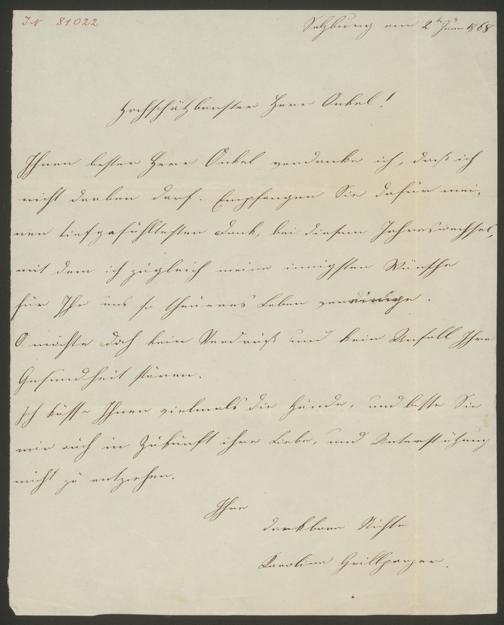 IN 81022
Salzburg am 2t Jänn 1868
Hochschätzbarster Herr Onkel!
Ihnen bester Herr Onkel verdanke ich, daß ich
nicht darben darf. Empfangen Sie dafür mei-
nen tiefgefühltesten Dank, bei diesem Jahreswechsel,
mit dem ich zugleich meine innigsten Wünsche
für Ihr uns so theueres Leben vereinige.
O möchte doch kein Verdruß und kein Unfall Ihre
Gesundheit stören.
Ich küsse Ihnen vielmals die Hände, und bitte Sie
mir auch in Zukunft ihre Liebe, und Unterstützung
nicht zu entziehen.
Ihre
dankbare Nichte
Karoline Grillparzer.